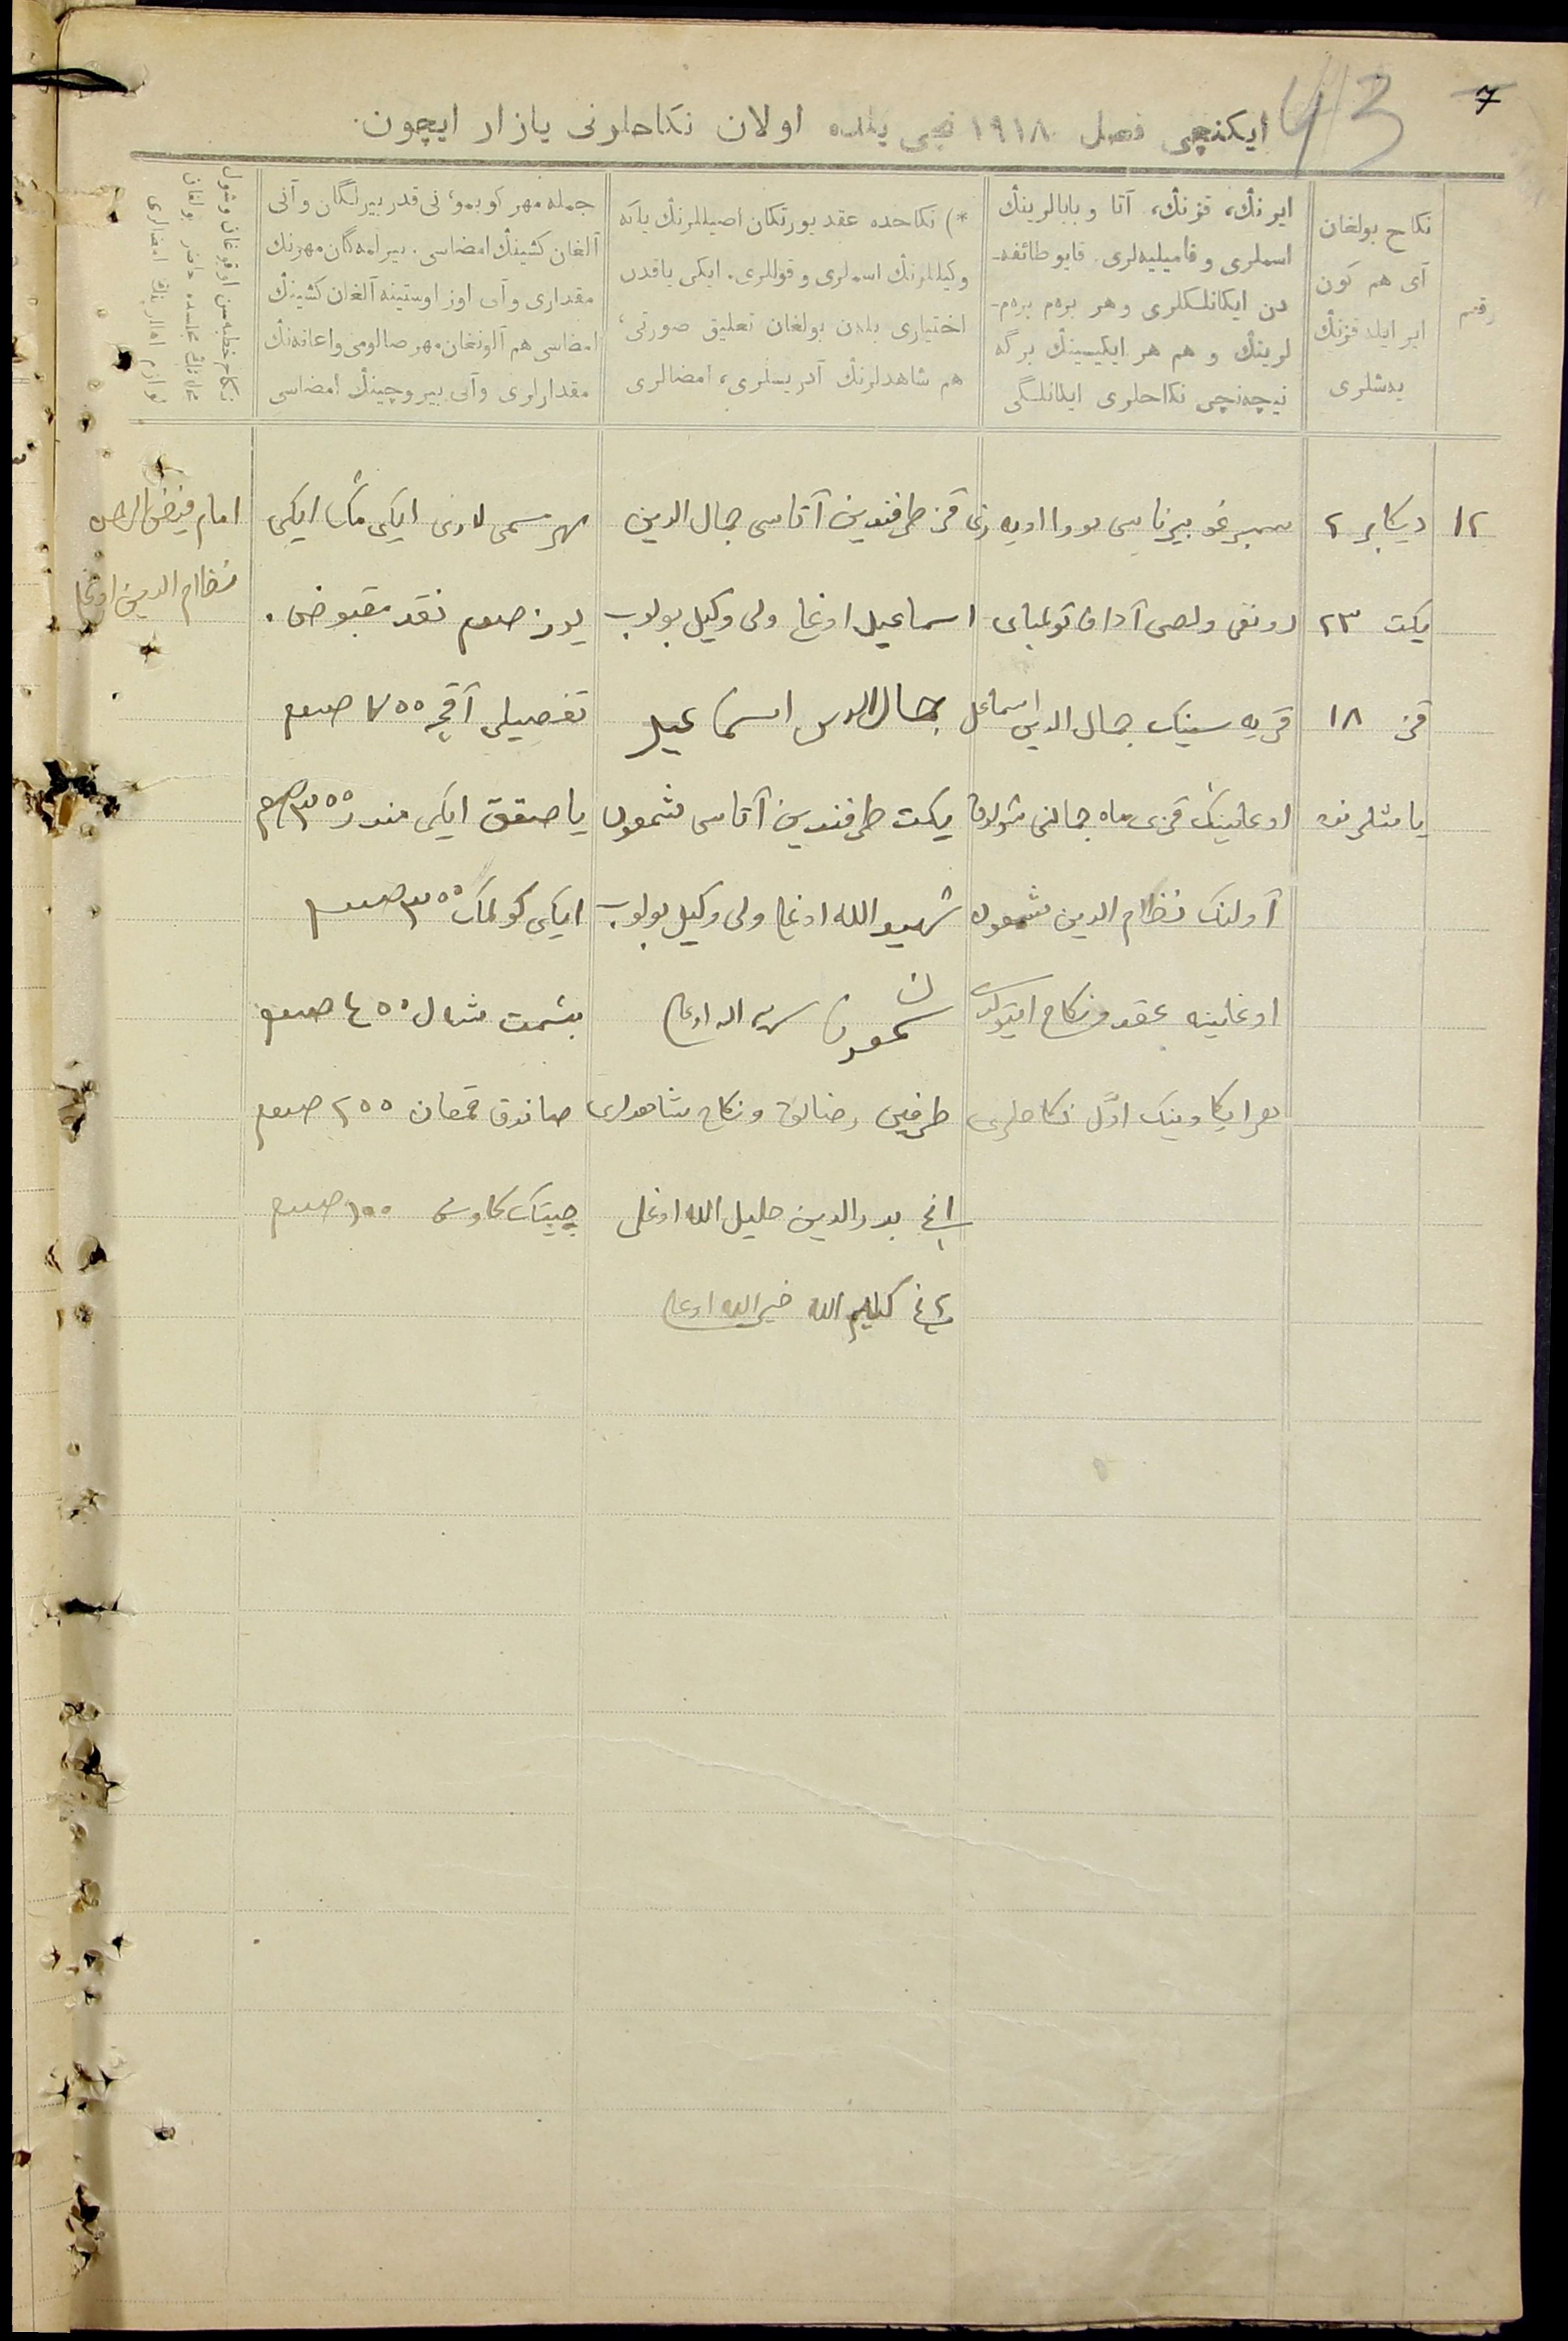 7
43
ایکنچی فصل ١٩١٨ نچی یلده اولان نکاحلرنی یازار ایچون.
رقم
نکاح بولغان
آی هم کون
ایر ایله قزنڭ
یەشلری
ایرنڭ، قزنڭ، آتا و بابالرینڭ
اسملری و فامیلیەلری. قایو طائفە-
دن ایکانلکلری و هر برەم برەم-
لرینڭ و هم هر ایکیسینڭ برگە
نیچەنچی نکاحلری ایکانلگی
*) نکاحده عقد یورتکان اصیللرنڭ یاکه
وکیللرنڭ اسملری و قوللری. ایکی یاقدن
اختیاری بلەن بولغان تعلیق صورتی،
هم شاهدلرنڭ آدریسلری، امضالری
جمله مهر کوبمو، نی قدر بیرلگان و آنی
آلغان کشینڭ امضاسی. بیرلمەگان مهرنڭ
مقداری و آنی اوز اوستینه آلغان کشینڭ
امضاسی هم آلونغان مهر صالومی و اعانەنڭ
مقدارلری و آنی بیروچینڭ امضاسی
نکاح خطبەسن اوقوغان و شول
١٢
دیکابر ٢
یکت ٢٣
قز ١٨
یاشلرنده
سمبر غوبیرناسی
ولصی آداف تولمبای
قریه سینک جمال الدین اسماعیل
اوغلینک قزی ماه جمالنی شولوق
آولنک نظام الدین شمعون
اوغلینه عقد نکاح ایتولدی
هر ایکاوینک اوّل نکاحلری
قز طرفندین آتاسی جمال الدین
اسماعیل اوغلی ولی وکیل بولوب
جمال الدین اسماعیل
یکت طرفندین آتاسی شمعون
شهید الله اوغلی ولی وکیل بولوب
طرفین رضالق و نکاح شاهدلری
١نچی بدرالدین خلیل الله اوغلی
٢نچی کلیم الله خیرالله اوغلی
مهر مسمی لاری ایکی مڭ ایکی
یوز صوم نقد مقبوض.
تفصیلی آقچه ٧٥٥ صوم
یاصدق ایکی مندر ٣٥٥ صوم
ایکی کولمک ٣٥٥ صوم
بشمت شال ٤٥٥ صوم
صاندوق ٢٥٥ صوم
چیتک کاوش ١٥٥ صوم
امام فیض الرحمن
نظام الدین اوغلی